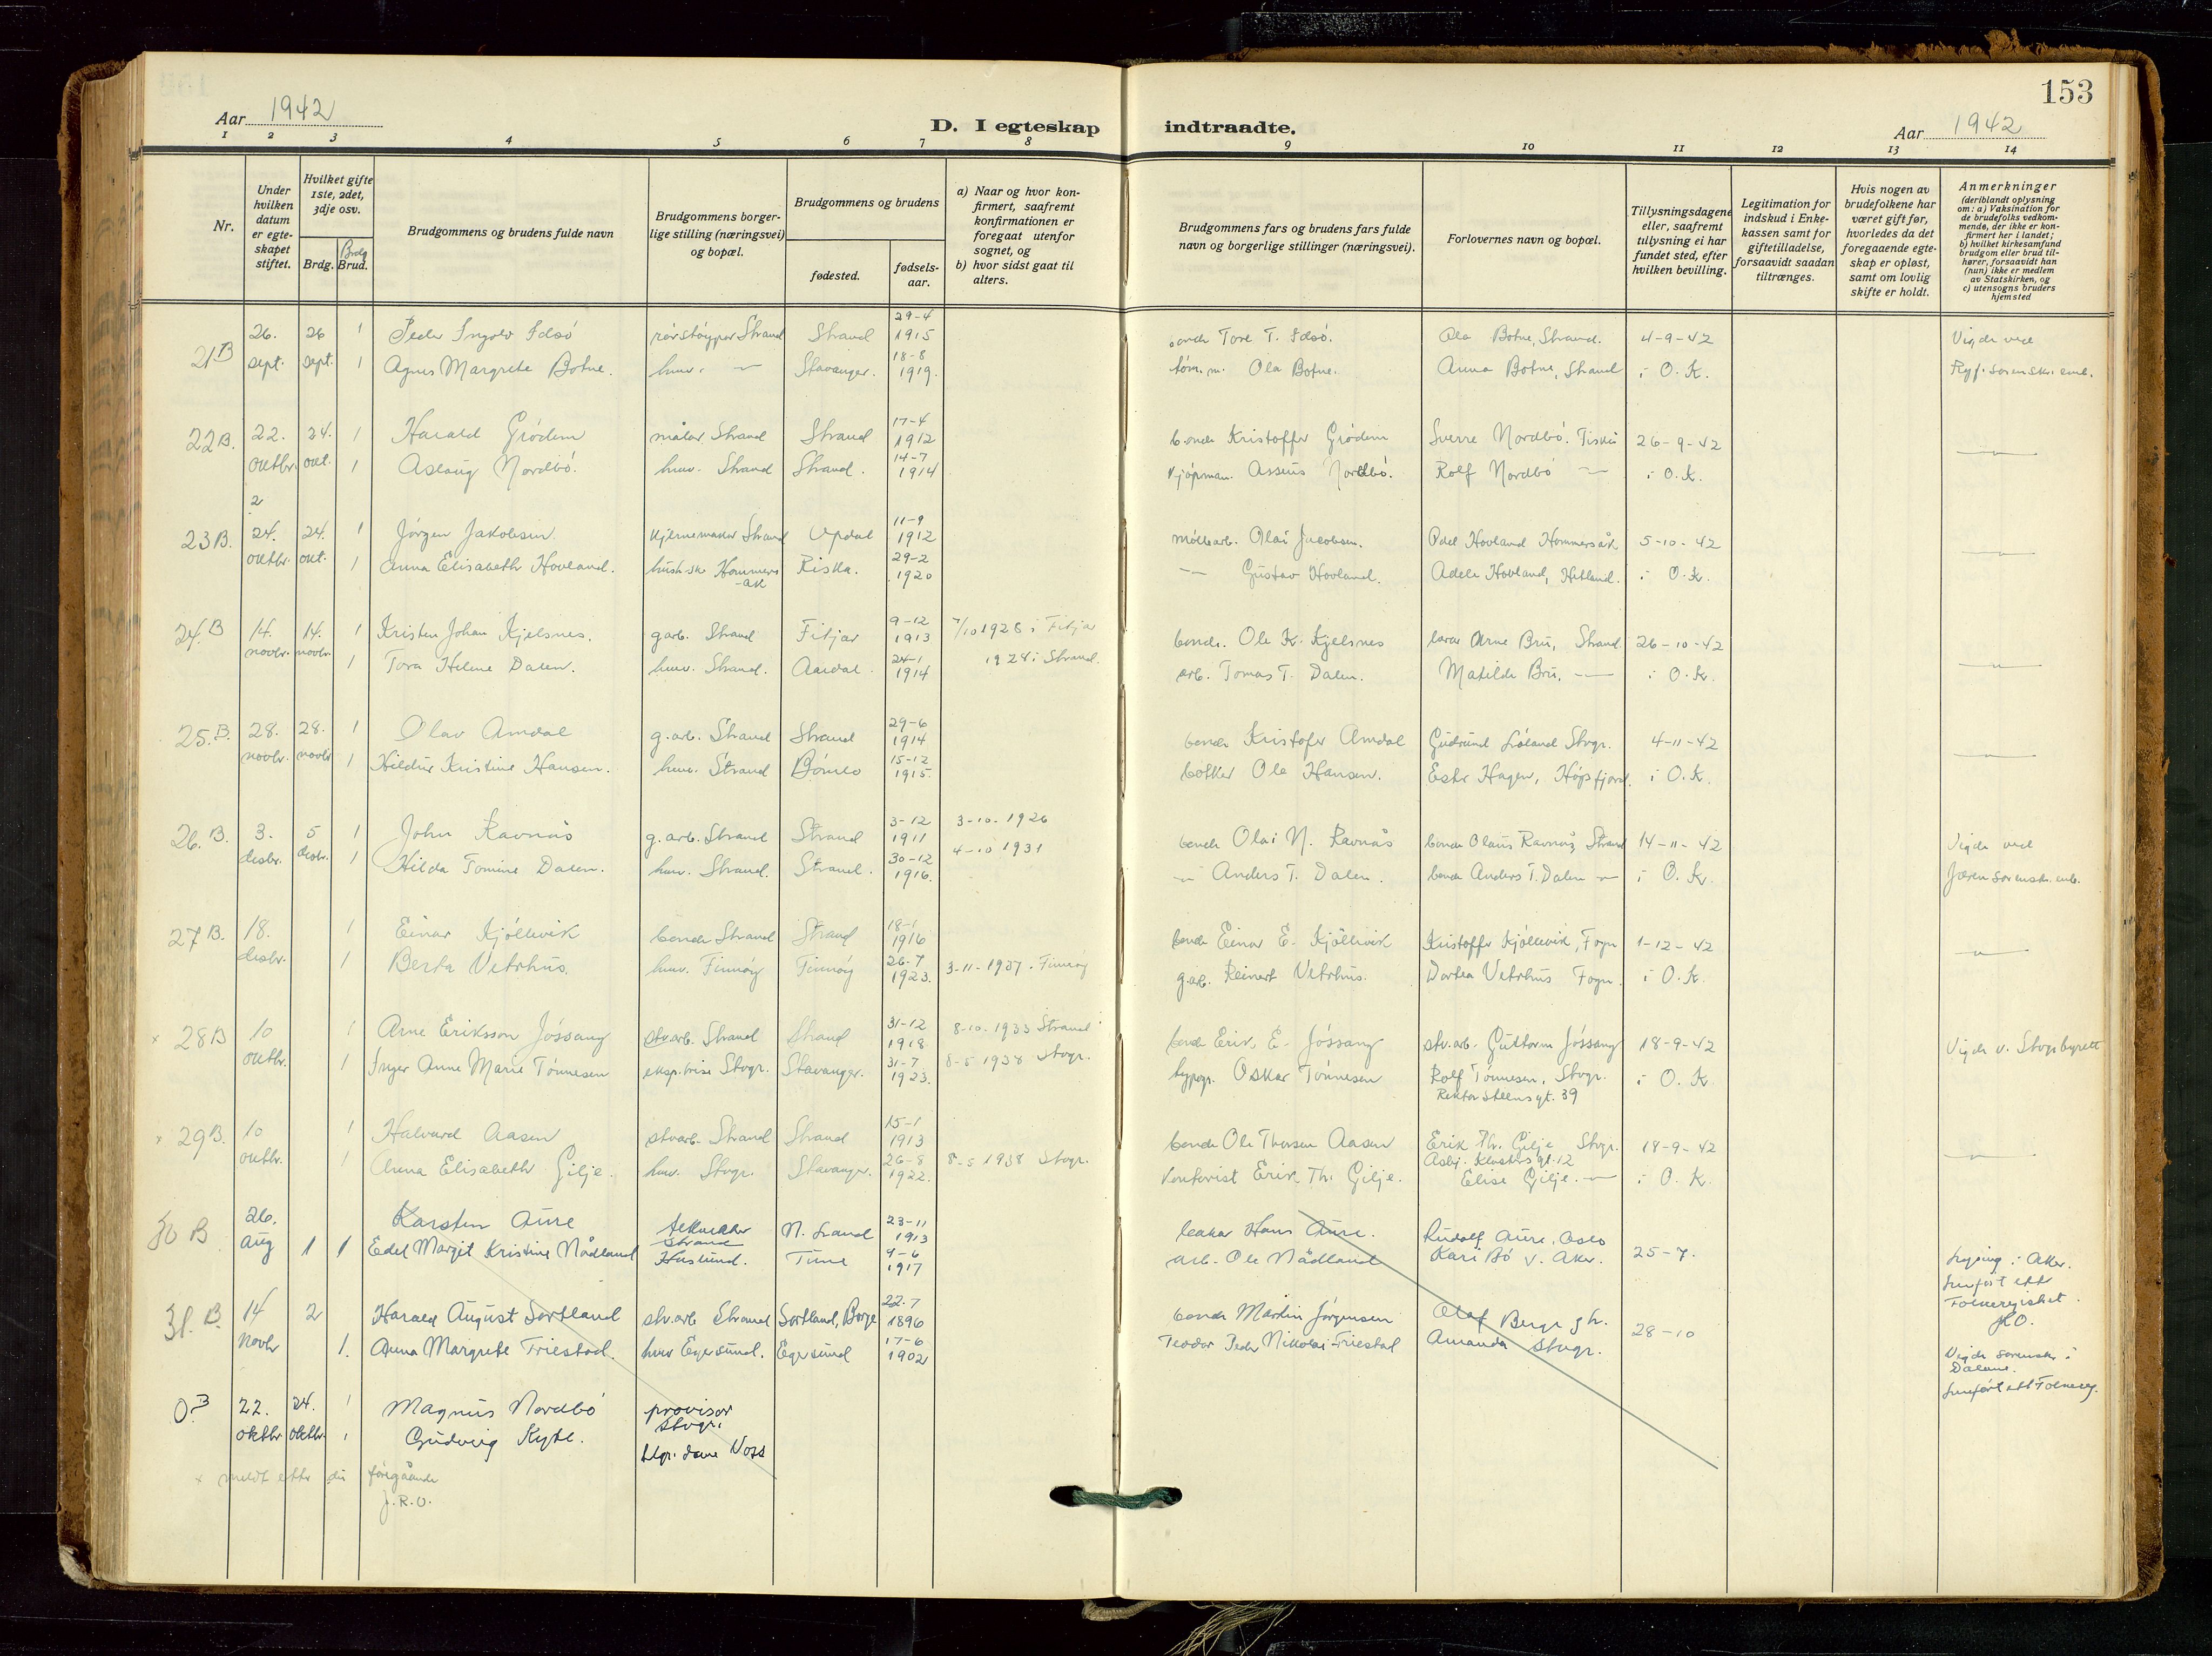 153
Aar 1942
D. I egteskap indtraadte.
Aar 1942
1 2 3 4 5 6 7 8 9 10 11 12 13 14
Nr.
Under hvilken datum er egteskapet stiftet.
Hvilket gifte 1ste, 2det, 3dje osv.
Brdg. Brud.
Brudgommens og brudens fulde navn
Brudgommens borgerlige stilling (næringsvei) og bopæl.
Brudgommens og brudens
fødested.
fødselsaar.
a) Naar og hvor konfirmert, saafremt konfirmationen er foregaat utenfor sognet, og
b) hvor sidst gaat til alters.
Brudgommens fars og brudens fars fulde navn og borgerlige stillinger (næringsvei).
Forlovernes navn og bopæl.
Tillysningsdagene eller, saafremt tillysning ei har fundet sted, efter hvilken bevilling.
Legitimation for indskud i Enkekassen samt for giftetilladelse, forsaavidt saadan tiltrænges.
Hvis nogen av brudefolkene har været gift før, hvorledes da det foregaaende egteskap er opløst, samt om lovlig skifte er holdt.
Anmerkninger (deriblandt oplysning om: a) Vaksination for de brudefolks vedkommende, der ikke er konfirmert her i landet; b) hvilket kirkesamfund brudgom eller brud tilhører, forsaavidt han (hun) ikke er medlem av Statskirken, og c) utensogns bruders hjemsted
21B 26. 26 1 Peder Ingolv Idsö rörstöyper Strand Strand 29-4 1915 bonde Tore T. Idsö. Ola Botne, Strand. 4-9-42 Vigde ved
sept. sept. 1 Agnes Margrete Botne. husv. — Stavanger. 18-8 1919. töm.m. Ola Botne. Anna Botne, Strand i O.K. Ryf. sorenskr. emb.
22B. 22. 24. 1 Harald Grödem målar Strand Strand 17-4 1912 bonde Kristoffer Grödem Sverre Nordbö. 26-9-42
oktbr. okt. 1 Aslaug Nordbö. husv. Strand Strand. 14-7 1914 Kjöpman. Assens Nordbö. Rolf Nordbö — i O.K.
2
23B. 24. 24. 1 Jörgen Jakobsen Kjernemaker Strand Updal 11-9 1912 möllearb. Olai Jacobsen. Odel Hovland Hommersåk 5-10-42
oktbr. okt. 1 Anna Elisabeth Hovland. Hommersåk Riska. 29-2 1920 — Gustav Hovland. Adele Hovland, Hetland. i O.K.
24.B 14. 14. 1 Kristen Johan Kjelsnes. g.arb. Strand Fitjar 9-12 1913 7/10 1928 i Fitjar bonde. Ole K. Kjelsnes lærar Arne Bru, Strand 26-10-42
novbr. novbr. 1 Tora Helene Dalen. husv. Strand. Aardal. 24-1 1914 1928 i Strand. arb. Tomas T. Dalen. Matilde Bru, — i O.K.
25.B. 28. 28. 1 Olav Amdal g.arb. Strand Strand 29-6 1914 bonde Kristofer Amdal Gudrund Löland Stvgr. 4-11-42
novbr. novbr 1 Hildur Kristine Hansen. husv. Strand Bömlo 15-12 1915. bötker Ole Hansen. Ester Hagen, Högsfjord. i O.K.
26.B. 3. 5 1 John Ravnås g.arb. Strand Strand 3-12 1911 3-10-1926 bonde Olai N. Ravnås bonde Olaus Ravnås, Strand 14-11-42 Vigde ved
desbr. desbr. 1 Hilda Tomine Dalen. husv. Strand. Strand. 30-12 1916. 4-10 1931 — Anders T. Dalen. bonde Anders T. Dalen — i O.K. Jæren sorenskr. emb.
27B. 18. 1 Einar Kjöllevik bonde Strand Strand 18-1 1916 bonde Einar E. Kjöllevik Kristoffer Kjöllevik, Fogn 1-12-42
desbr. 1 Berta Vetrhus. husv. Finnöy Finnöy 26-7 1923. 3-11-1937. Finnöy g.arb. Reinert Vetrhus. Dortea Vetrhus Fogn. i O.K.
× 28B 10 1 Arne Eriksson Jössang stv.arb. Strand Strand 31-12 1918 8-10-1933 Strand bonde Erik E. Jössang stv.arb. Guttorm Jössang 18-9-42 Vigde v. Stvgr byrett
oktbr. 1 Inger Anne Marie Tönnesen eksp.trise Stvgr. Stavanger. 31-7 1923. 8-5 1938 Stvgr. typogr. Oskar Tönnesen Rolf Tönnesen, Stvgr. i O.K
Rektor Steens gt. 39
× 29B. 10 1 Halvard Aasen stvarb. Strand Strand 15-1 1913 bonde Ole Thorsen Aasen Erik Th. Gilje Stvgr. 18-9-42
oktbr. 1 Anna Elisabeth Gilje. husv. Stvgr. Stavanger. 26-8 1922. 8-5 1938 Stvgr. Kontorist Erik Th. Gilje. Asbj. Klosters gt. 12 Elise Gilje. — i O.K.
30 B 26. Karsten Aure tekniker Strand N. Land 23-11 1913 Hans Aure. Rudolf Aure, Oslo
aug 1 1 Edel Margit Kristine Nådland Haslund. Tune 4-6 1917 arb. Ole Nådland Kari Bö V. Aker. 25-7. Lysing i Aker.
Innfört ett Folkeregistret.
31.B. 14 2 Harald August Sortland stv.arb Strand Sortland, Borge 22-7 1896 bonde Martin Jörgensen Olaf Berge gh. 28-10
Novbr 1. Anna Margrete Friestad. husv Egersund. Egersund 17-6 1902 Teodor Peder Nikolai Friestad Amanda Stvgr. Vigde sorenskr. i Dalane.
Innfört ett Folkereg.
0.B 22. 24. 1 Magnus Nordbö provisor Stvgr.
oktbr oktbr. 1 Gudveig Kyte. Voss
× meldt etter dei föregåande
J.R.O.